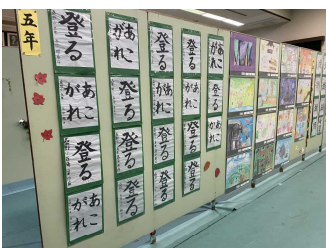 五年
登る
あこ
がれ
登る
登る
あこ
がれ
あこ
がれ
登る
登る
登る
登る
あこ
がれ
登る
登る
登る
あこ
がれ
登る
登る
あこ
がれ
登る
登る